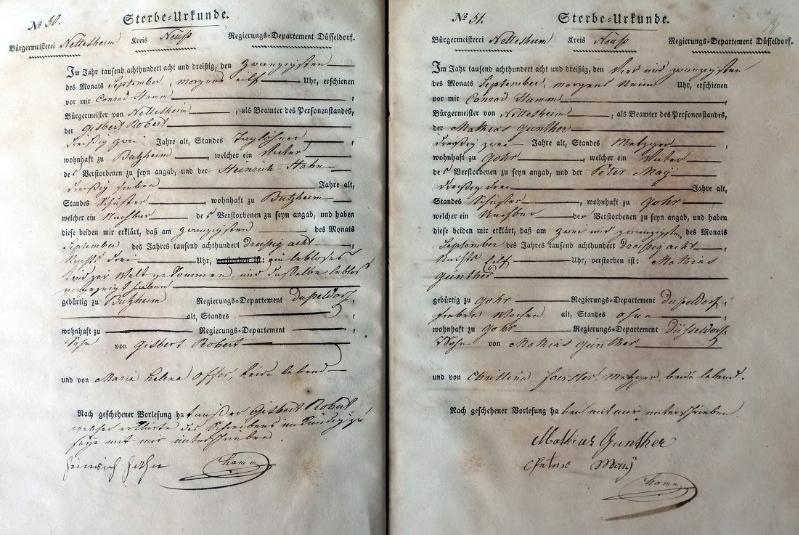 No 50. Sterbe-Urkunde.
Bürgermeisterei Nettesheim Kreis Neuß Regierungs-Departement Düsseldorf.
Im Jahr tausend achthundert acht und dreißig, den zwanzigsten
des Monats September, morgens eilf Uhr, erschienen
vor mir Conrad Hamm,
Bürgermeister von Nettesheim, als Beamter des Personenstandes,
der Gisbert Robert
dreißig zwei Jahre alt, Standes Taglöhner,
wohnhaft zu Butzheim, welcher ein Vater
des Verstorbenen zu seyn angab, und der Heinrich Hahn
dreißig sieben Jahre alt,
Standes Schuster, wohnhaft zu Butzheim,
welcher ein Nachbar des Verstorbenen zu seyn angab, und haben
diese beiden mir erklärt, daß am zwanzigsten des Monats
September des Jahres tausend achthundert dreissig acht,
Nachts drei Uhr, ein lebloses
Kind zur Welt gekommen und dasselbe leblos
vorgezeigt haben
gebürtig zu Butzheim Regierungs-Departement Dusseldorf,
alt, Standes
wohnhaft zu Regierungs-Departement
Sohn von Gisbert Robert
und von Maria Helena Offer, beide lebend
Nach geschehener Vorlesung ha außer Gisbert Robert
welcher erklärte des Schreibens unkundig zu
seyn mit mir unterschrieben.
Heinrich Hahn Hamm
No 51. Sterbe-Urkunde.
Bürgermeisterei Nettesheim Kreis Neuß Regierungs-Departement Düsseldorf.
Im Jahr tausend achthundert acht und dreißig, den vier und zwanzigsten
des Monats September, morgens neun Uhr, erschienen
vor mir Conrad Hamm,
Bürgermeister von Nettesheim, als Beamter des Personenstandes,
der Mathias Gunther
dreißig zwei Jahre alt, Standes Metzger,
wohnhaft zu Gohr, welcher ein Vater
des Verstorbenen zu seyn angab, und der Peter May
dreißig drei Jahre alt,
Standes Schuster, wohnhaft zu Gohr,
welcher ein Nachbar der Verstorbenen zu seyn angab, und haben
diese beiden mir erklärt, daß am zwei und zwanzigsten des Monats
September des Jahres tausend achthundert dreissig acht,
Nachts Uhr, verstorben ist: Mathias
Gunther
gebürtig zu Gohr Regierungs-Departement Dusseldorf,
sieben Wochen alt, Standes ohne
wohnhaft zu Gohr Regierungs-Departement Düsseldorf
Sohn von Mathias Gunther
und von Christina Forster, Metzger, beide lebend.
Nach geschehener Vorlesung haben mit mir unterschrieben.
Mathias Gunther
Peter May
Hamm